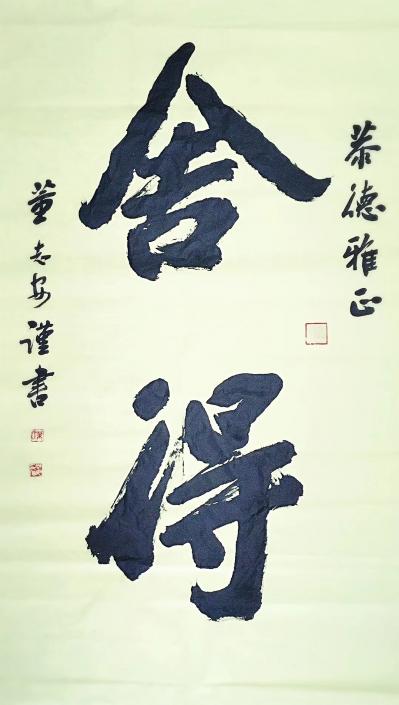 恭德雅正
舍得
董志安谨书